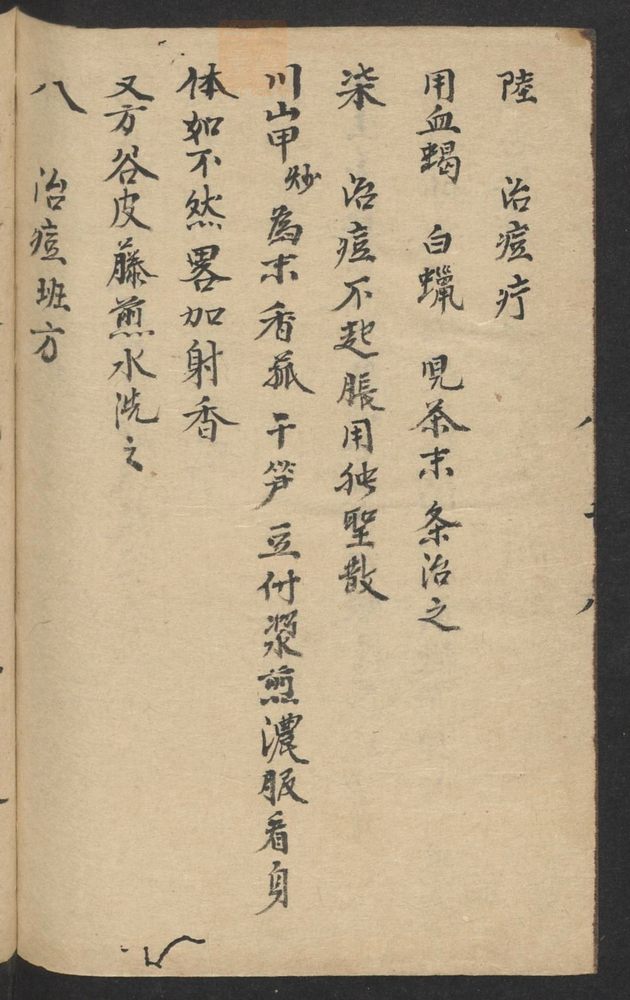 陸 治痘疔
用血蝎 白蠟 児茶末 条治之
柒 治痘不起脹用独聖散
川山甲炒為末香菰干笋豆付漿煎濃服看身
体如不然畧加射香
又方谷皮藤煎水洗之
八 治痘班方